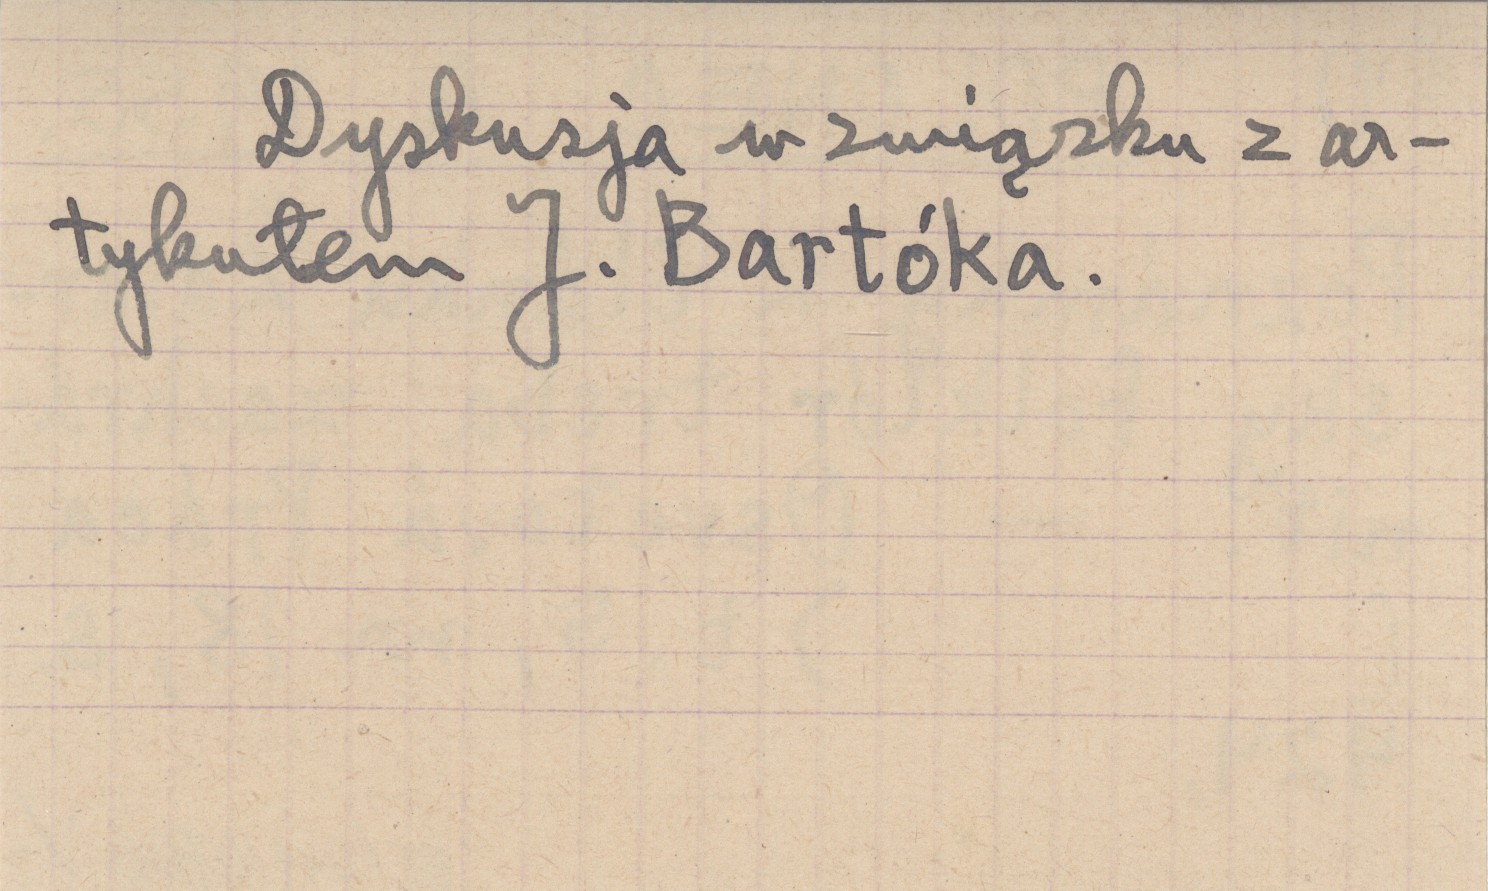 Dyskusja w związku z ar-
tykułem J. Bartóka.